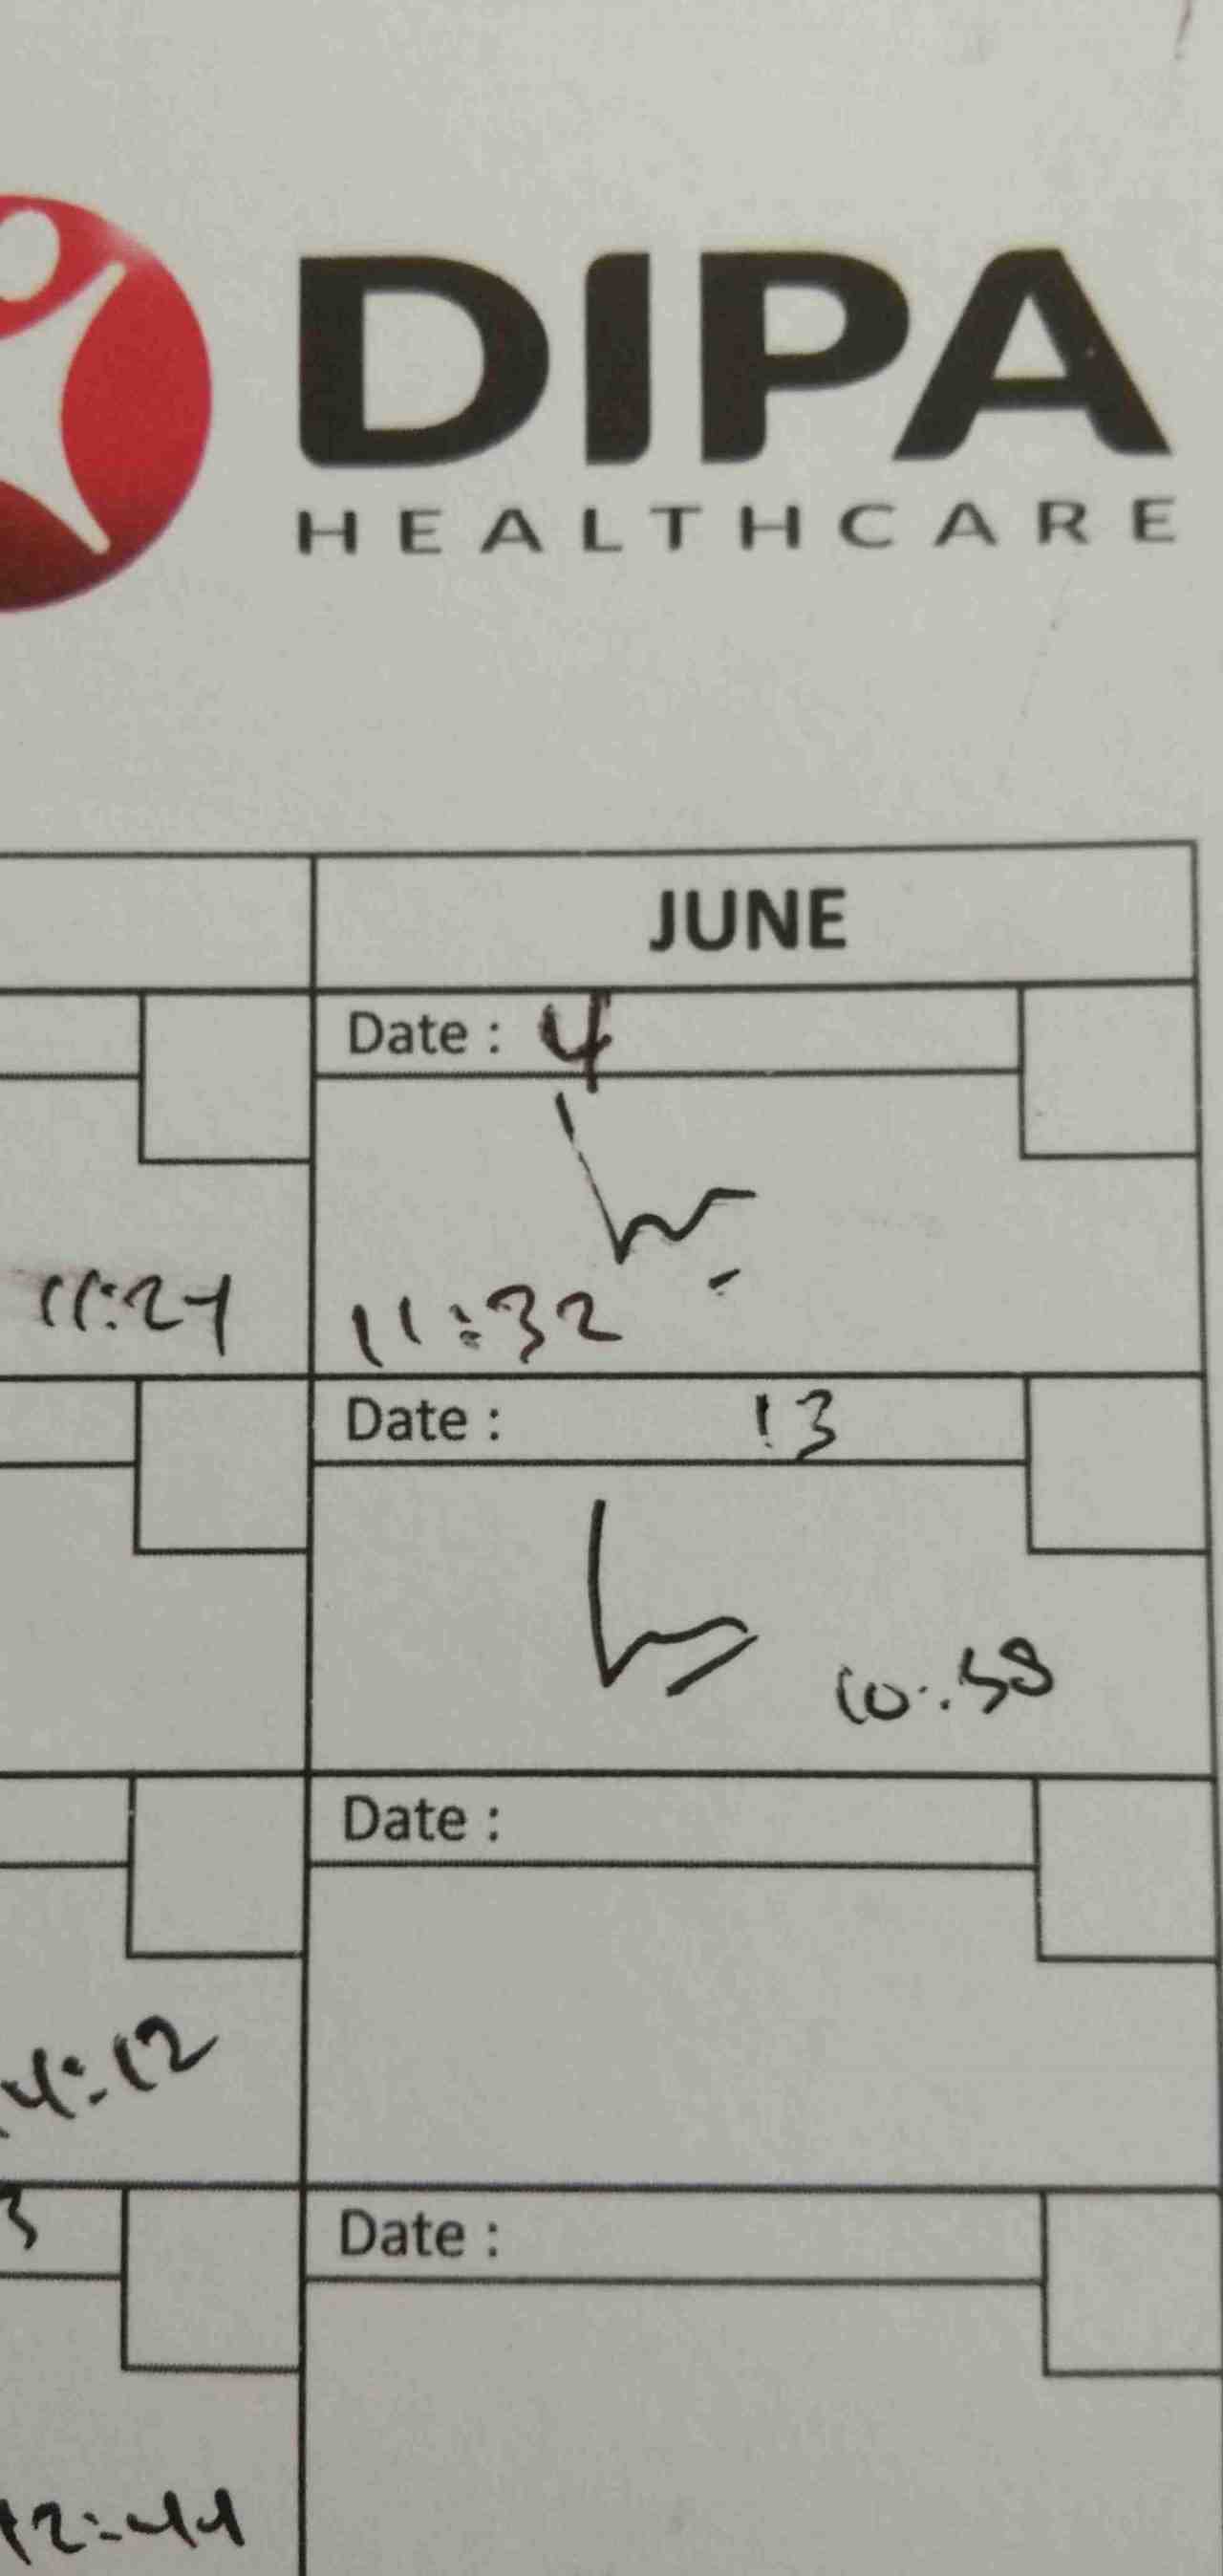 DIPA
HEALTHCARE
JUNE
Date : 4
11:32
Date : 13
10:58
4:12
Date :
3
Date :
12:44